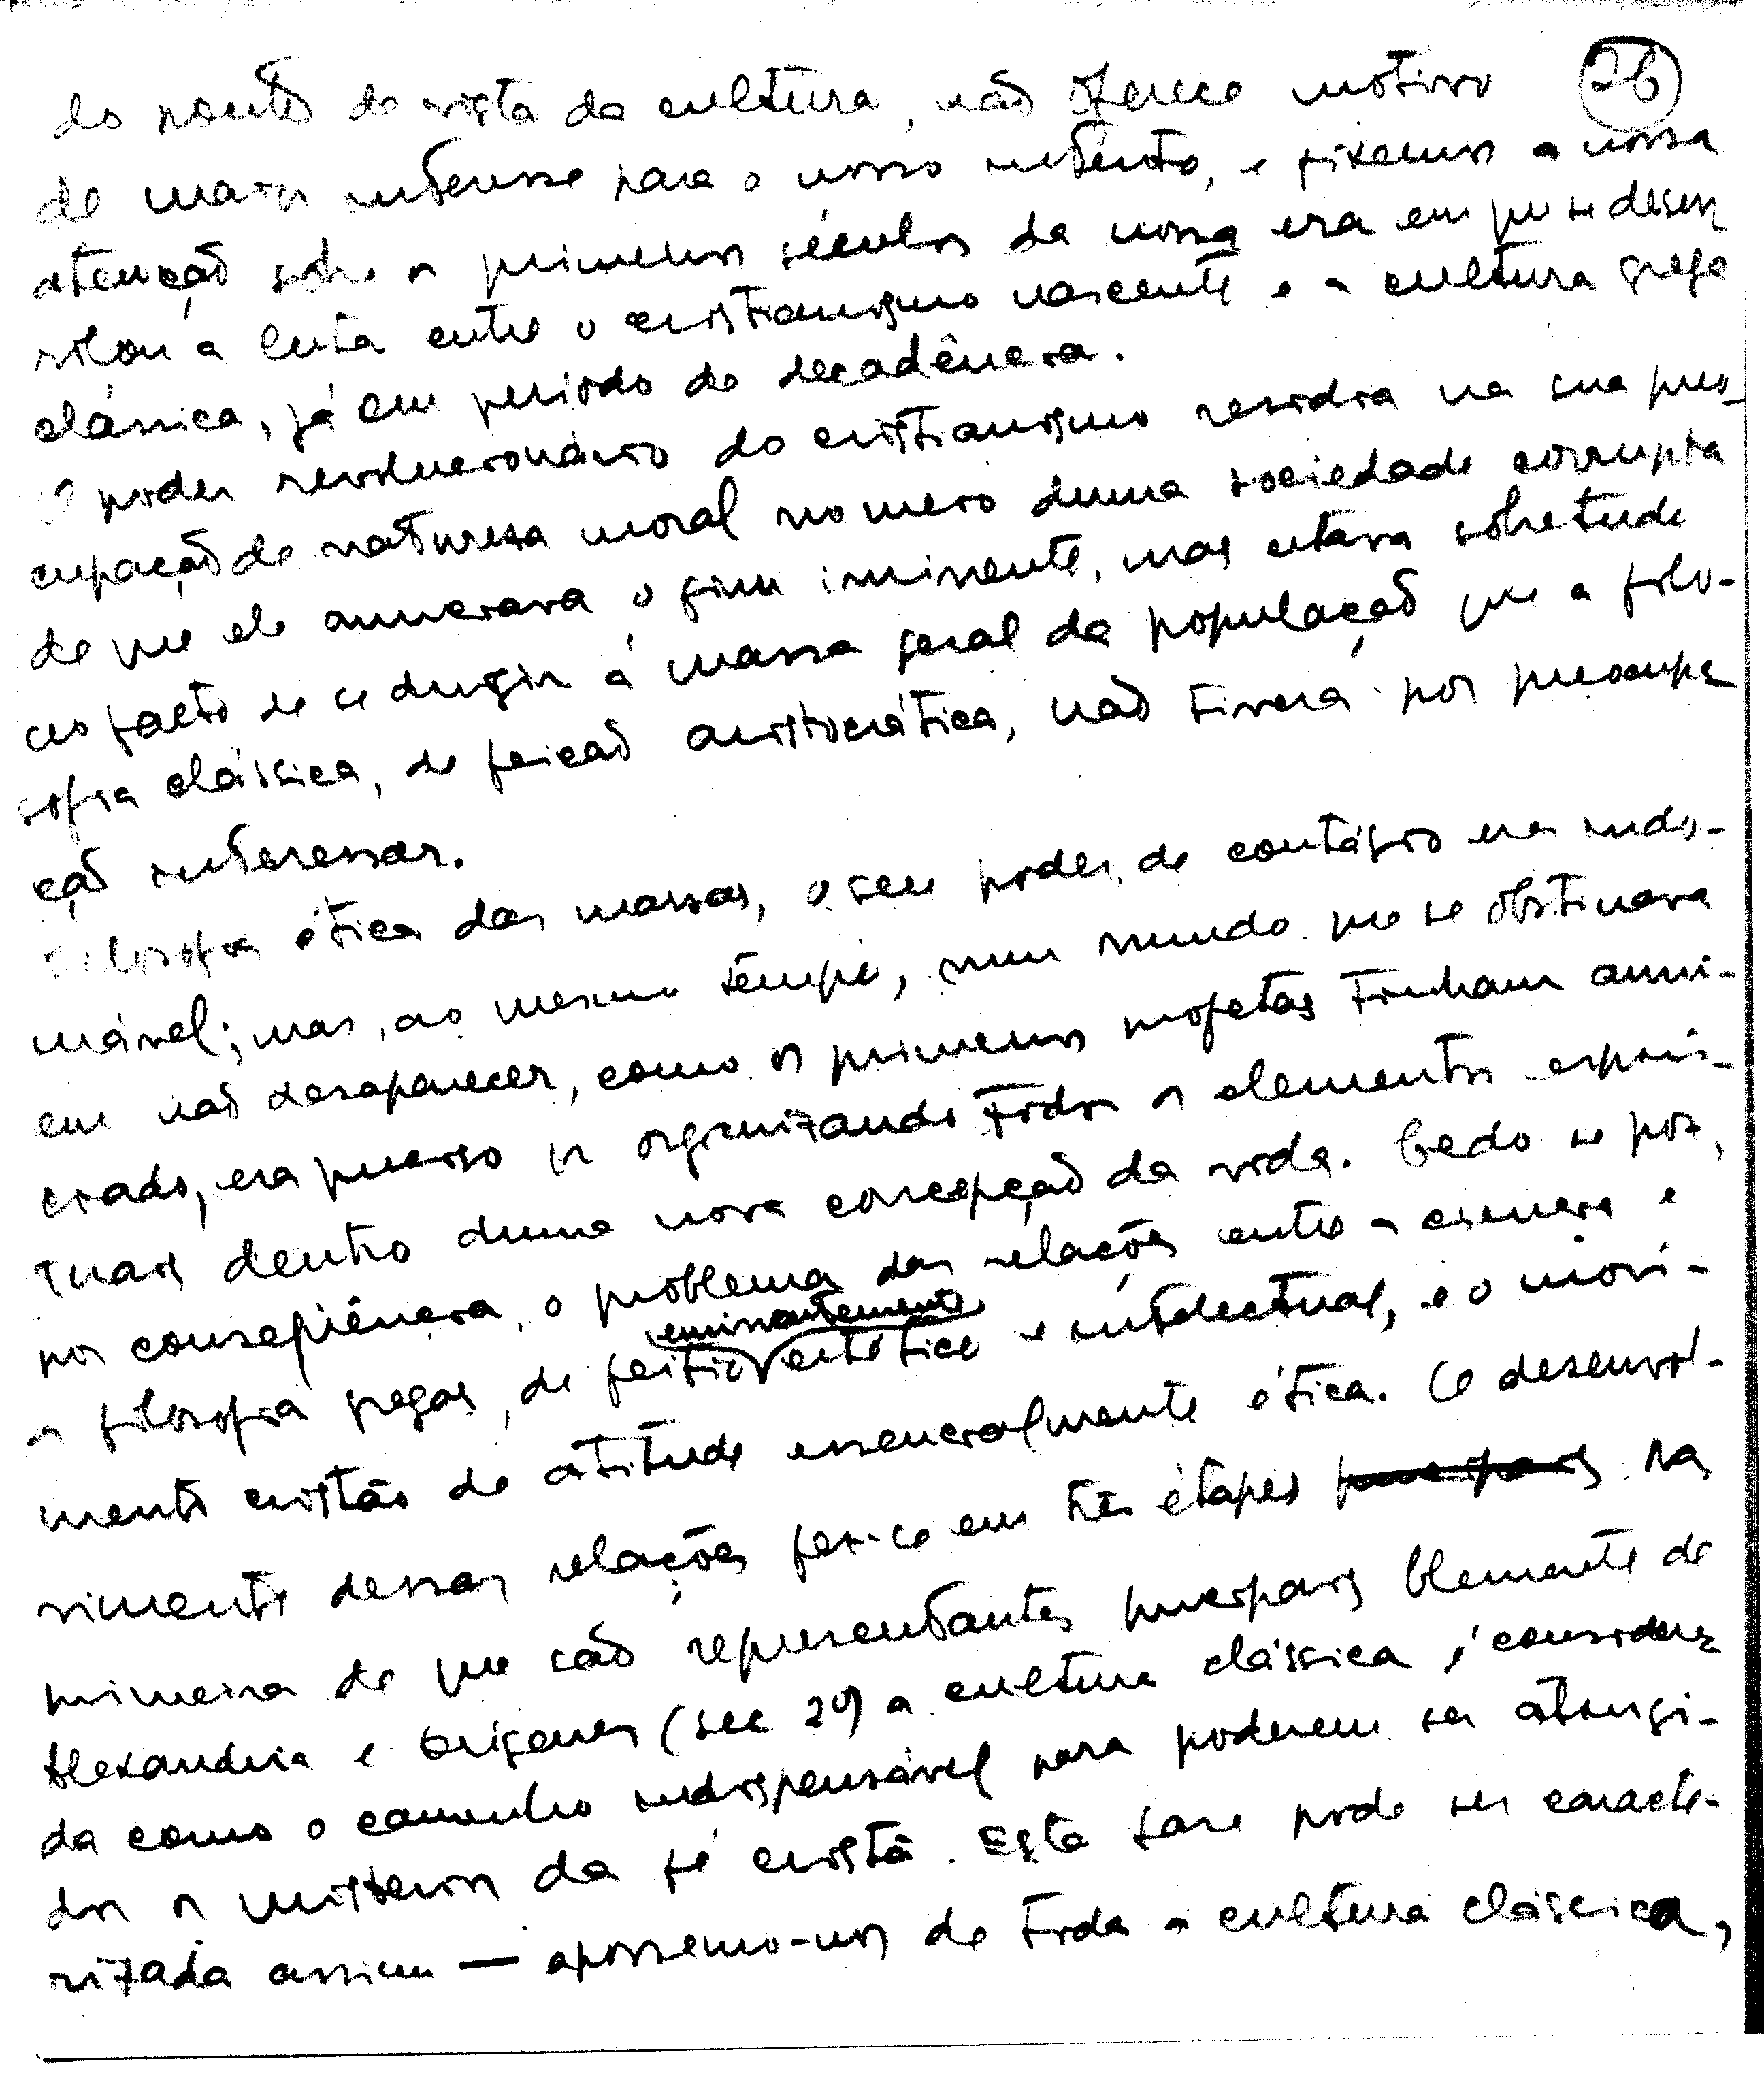 26
do ponto de vista da cultura, não oferece motivo
de maior interesse para o nosso intento, e fixemos a nossa
atenção sobre os primeiros séculos da nossa era em que se desen
rolou a luta entre o cristianismo nascente e a cultura grega
clássica, já em período de decadência.
O poder revolucionário do cristianismo residia na sua preo_
cupação de natureza moral no meio duma sociedade corrupta
de que ele anunciava o fim iminente, mas estava sobretudo
no facto de se dirigir à massa geral da população que a filo-
sofia clássica, de feição aristocrática, não tivera por preocupa
ção interessar.
Filosofia ética das massas, o seu poder de contágio era indo-
mável; mas, ao mesmo tempo, num mundo que se obstinava
em não desaparecer, como os primeiros profetas tinham anun-
ciado, era preciso ir organizando todos os elementos espiri-
tuais dentro duma nova concepção da vida. Cedo se poz,
por conseqüência, o problema das relações entre a ciencia e
a filosofia gregas, de feitio eminentemente estético e intelectual, e o movi-
mento cristão de atitude essencialmente ética. O desenvol-
vimento dessas relações fez-se em três étapes principais. Na
primeira de que são representantes principais Clemente de
Alexandria e Origenes (sec 2º) a cultura clássica é considera
da como o caminho indispensável para poderem ser atingi-
dos os mistérios da fé cristã. Esta fase pode ser caracte-
rizada assim — apossemo-nos de toda a cultura clássica,